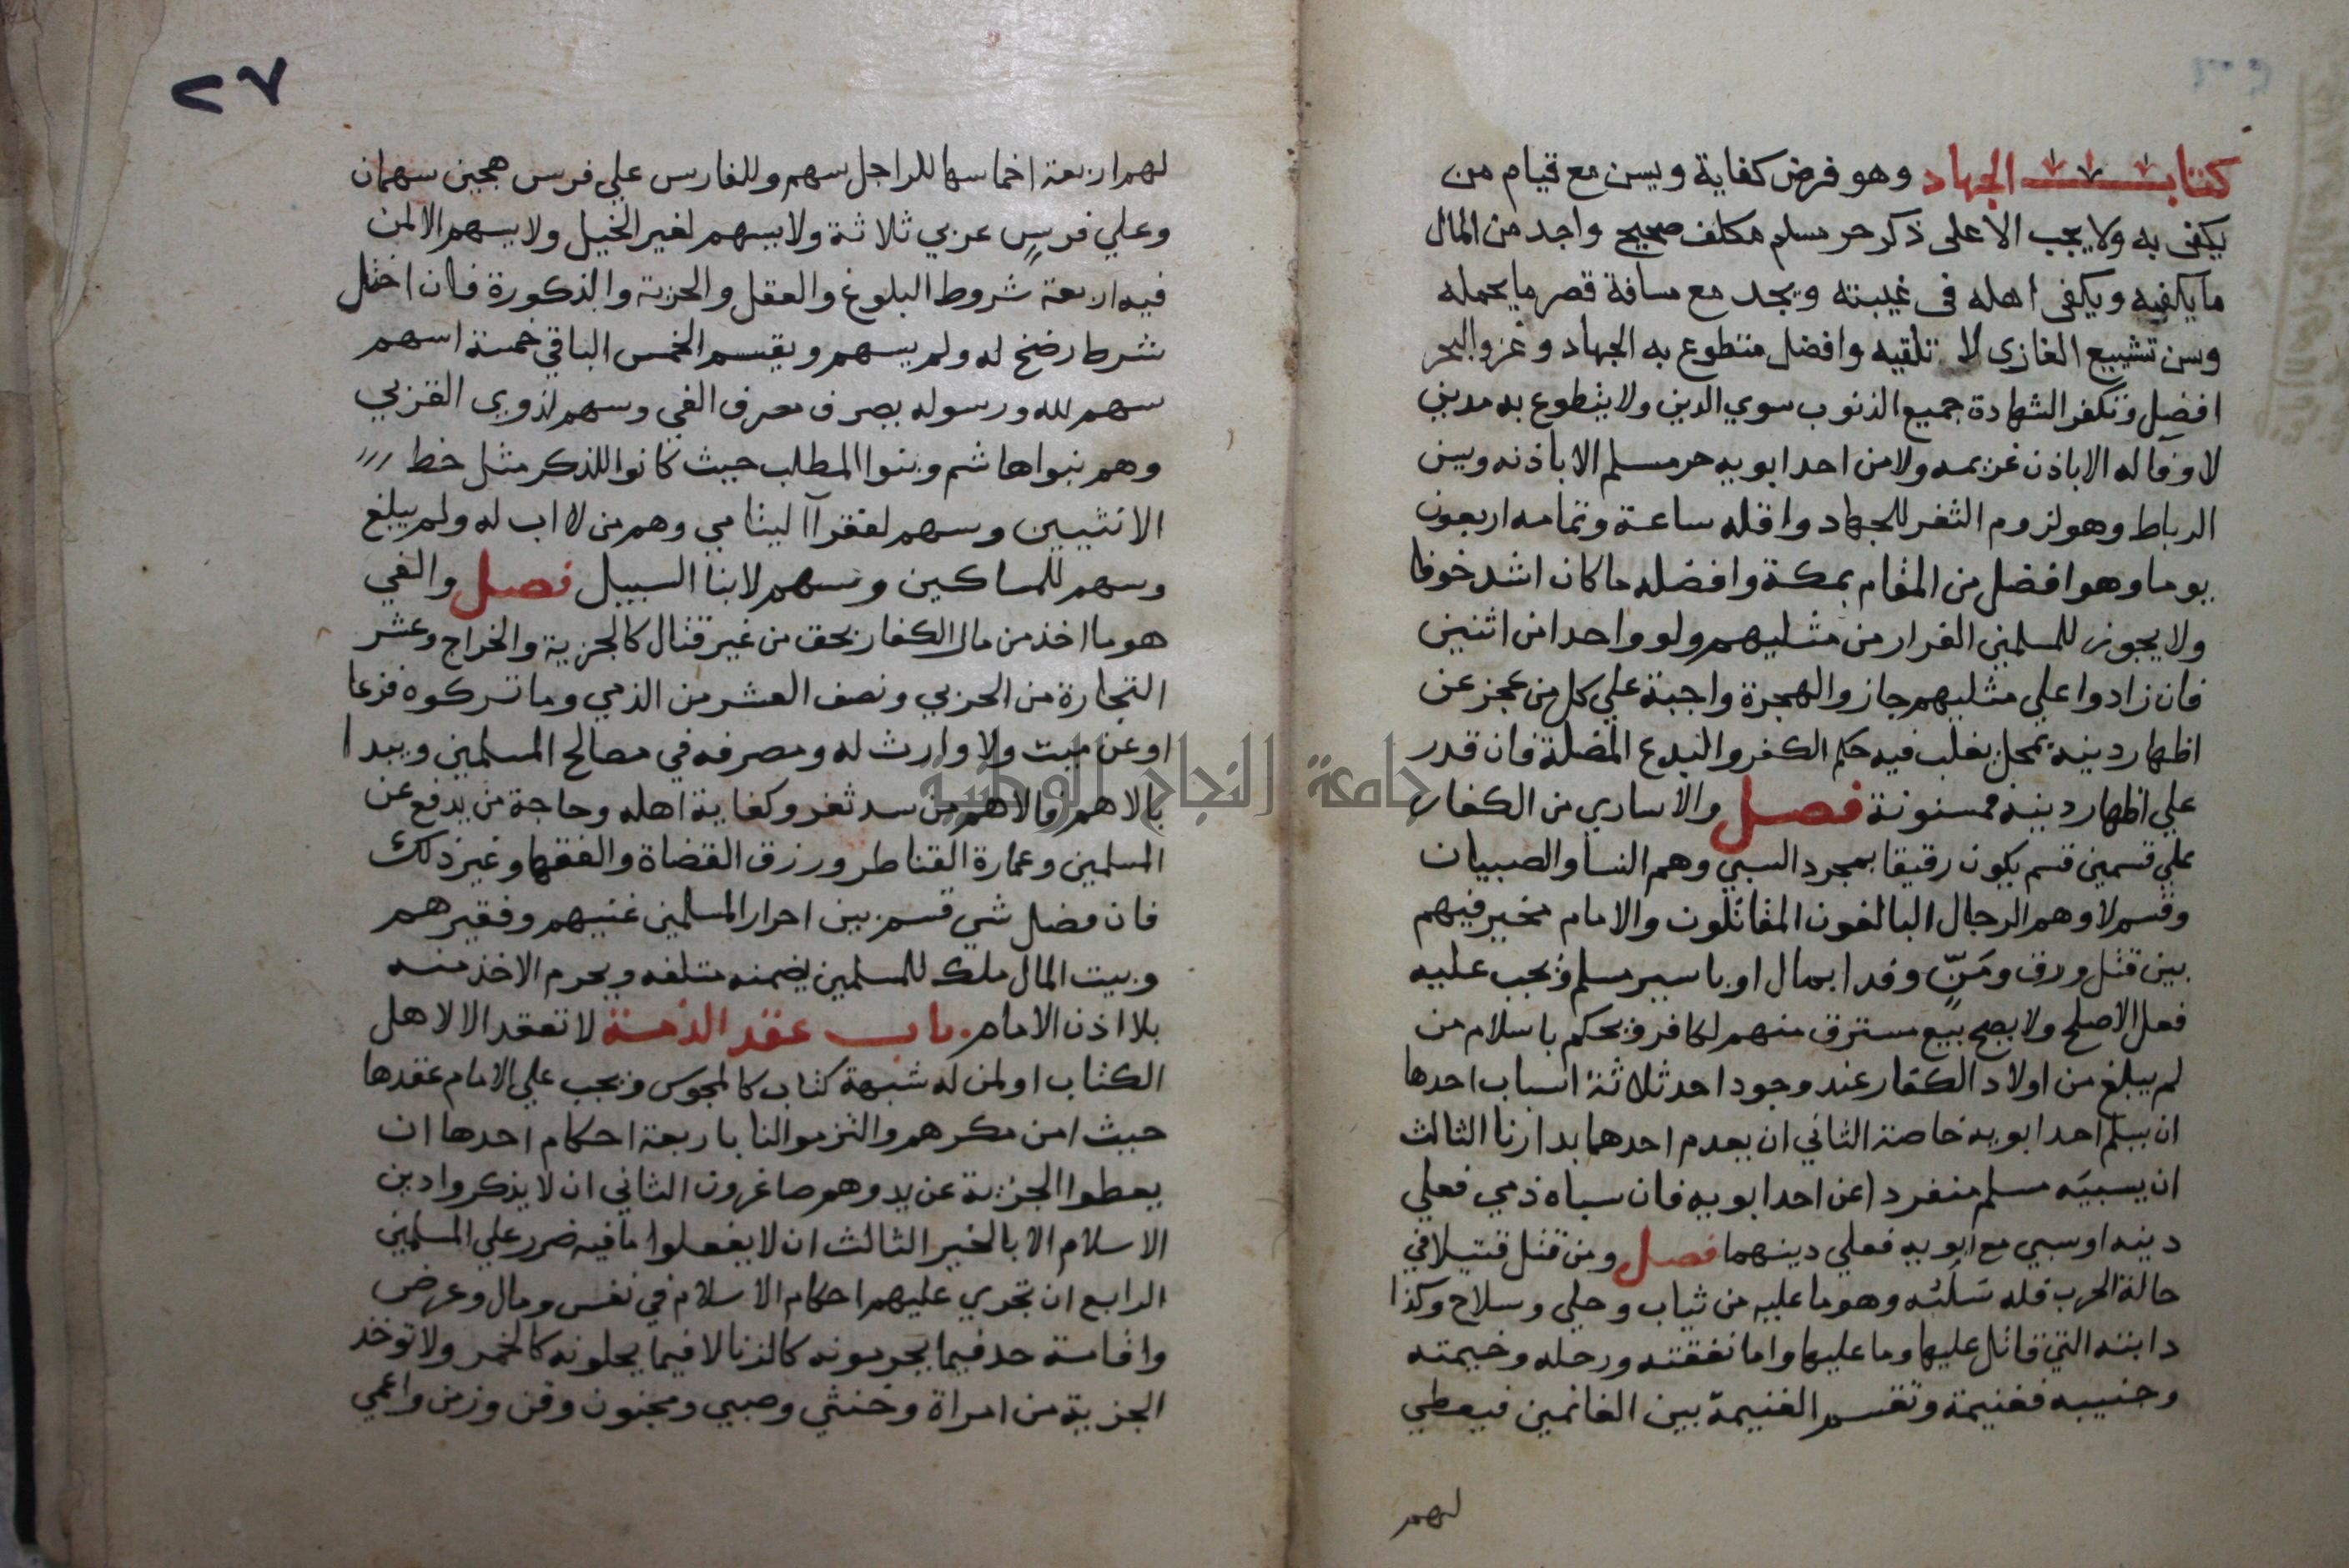 كتاب الجهاد وهو فرض كفاية ويسن مع قيام من
يكفى به ولا يجب الا على ذكر حر مسلم مكلف صحيح واجد من المال
ما يكفيه ويكفى اهله فى غيبته ويجد مع مسافة قصر ما يحمله
وسن تشييع الغازي لا تلقيه وافضل متطوع به الجهاد وغزو البحر
افضل وتكفر الشهادة جميع الذنوب سوي الدين ولا يتطوع به مدين
لا وفا له الا باذن غريمه ولا من احد ابويه حر مسلم الا باذنه ويسن
الرباط وهو لزوم الثغر للجهاد واقله ساعة وتمامه اربعون
يوما وهو افضل من المقام بمكة وافضله ما كان اشد خوفا
ولا يجوز للمسلمين الفرار من مثليهم ولو واحدا من اثنين
فان زادوا علي مثليهم جاز والهجرة واجبة علي كل من عجز عن
اظهار دينه بمحل يغلب فيه حكم الكفر والبدع المضلة فان قدر
علي اظهار دينه فمسنونة فصل والاساري من الكفار
علي قسمين قسم يكون رقيقا بمجرد السبي وهم النسا والصبيان
وقسم لا وهم الرجال البالغون المقاتلون والامام مخير فيهم
بين قتل ورق ومنّ وفدا بمال او باسير مسلم فيجب عليه
فعل الاصلح ولا يصح بيع مسترق منهم لكافر ويحكم باسلام من
لم يبلغ من اولاد الكفار عند وجود احد ثلاثة اسباب احدها
ان يسلم احد ابويه خاصة الثاني ان يعدم احدهما بدارنا الثالث
ان يسبيه مسلم منفردا عن احد ابويه فان سباه ذمي فعلي
دينه او سبي مع ابويه فعلي دينهما فصل ومن قتل قتيلا في
حالة الحرب فله سلبه وهو ما عليه من ثياب وحلي وسلاح وكذا
دابته التي قاتل عليها وما عليها واما نفقته ورحله وخيمته
وجنيبه فغنيمة وتقسم الغنيمة بين الغانمين فيعطي
لهم
٢٧
لهم اربعة اخماسها للراجل سهم وللفارس علي فرس هجين سهمان
وعلي فرس عربي ثلاثة ولا يسهم لغير الخيل ولا يسهم الا لمن
فيه اربعة شروط البلوغ والعقل والحرية والذكورة فان اختل
شرط رضخ له ولم يسهم ويقسم الخمس الباقي خمسة اسهم
سهم لله ورسوله يصرف مصرف الفي وسهم لذوي القربي
وهم بنوا هاشم وبنوا المطلب حيث كانوا للذكر مثل حظ
الانثيين وسهم لفقرآ اليتامي وهم من لا اب له ولم يبلغ
وسهم للمساكين وسهم لابنا السبيل فصل والفي
هو ما اخذ من مال الكفار بحق من غير قتال كالجزية والخراج وعشر
التجارة من الحربي ونصف العشر من الذمي وما تركوه فزعا
او عن ميت ولا وارث له ومصرفه في مصالح المسلمين ويبدا
بالاهم فالاهم من سد ثغر وكفاية اهله وحاجة من يدفع عن
المسلمين وعمارة القناطر ورزق القضاة والفقها وغير ذلك
فان فضل شي قسم بين احرار المسلمين غنيهم وفقيرهم
وبيت المال ملك للمسلمين يضمنه متلفه ويحرم الاخذ منه
بلا اذن الامام باب عقد الذمة لا تعقد الا لاهل
الكتاب او لمن له شبهة كتاب كالمجوس ويجب علي الامام عقدها
حيث امن مكرهم والتزموا لنا باربعة احكام احدها ان
يعطوا الجزية عن يد وهم صاغرون الثاني ان لا يذكروا دين
الاسلام الا بالخير الثالث ان لا يفعلوا ما فيه ضرر علي المسلمين
الرابع ان تجري عليهم احكام الاسلام في نفس ومال وعرض
واقامة حد فيما يحرمونه كالزنا لا فيما يحلونه كالخمر ولا توخذ
الجزية من امراة وخنثي وصبي ومجنون وقن وزمن واعمي
جامعة النجاح الوطنية